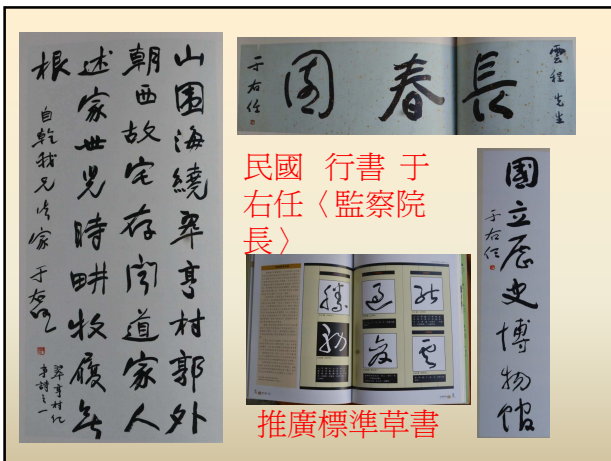 山围海繞翠亨村郭外
朝西故宅存聞道家人
述家世兒時畊牧履無
根
自乾我兄法家 于右任
翠亨村紀
事詩之一
雲程先生
長春園
于右任
民國 行書 于
右任〈監察院
長〉
國立歷史博物館
于右任
推廣標準草書